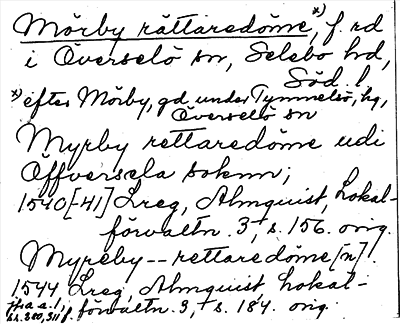 Mörby rättaredöme,*) f. rd
i Överselö sn, Selebo hd,
Söd. l
*) efter Mörby, gd under Tynnelsö, hg,
Överselö sn
Myrby rettaredöme udi
Öffversela soknn;
1540[-41] Lreg, Almquist, Lokal-
förvaltn. 3, s. 156. orig.
Myreby -- rettaredöme[n]
1544 Lreg, Almquist Lokal-
jfr a. a. 1, förvaltn. 3, s. 184. orig.
ss. 310, 311 f.